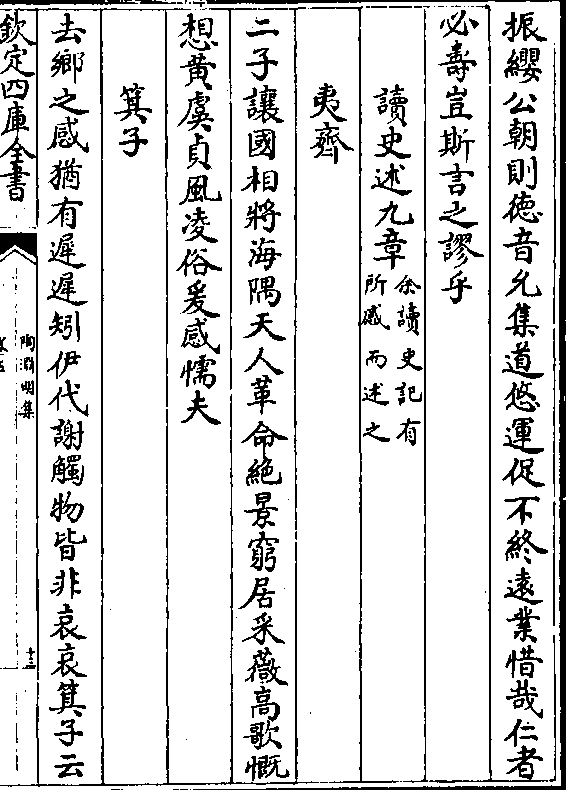 振纓公朝則徳音允集道悠運促不終遠業惜哉仁者
必壽豈斯言之謬乎
讀史述九章
余讀史記有
所感而述之
夷齊
二子讓國相將海隅天人革命絶景窮居采薇高歌慨
想黄虞貞風凌俗爰感懦夫
箕子
去鄉之感猶有遲遲矧伊代謝觸物皆非哀哀箕子云
欽定四庫全書
陶淵明集
十三